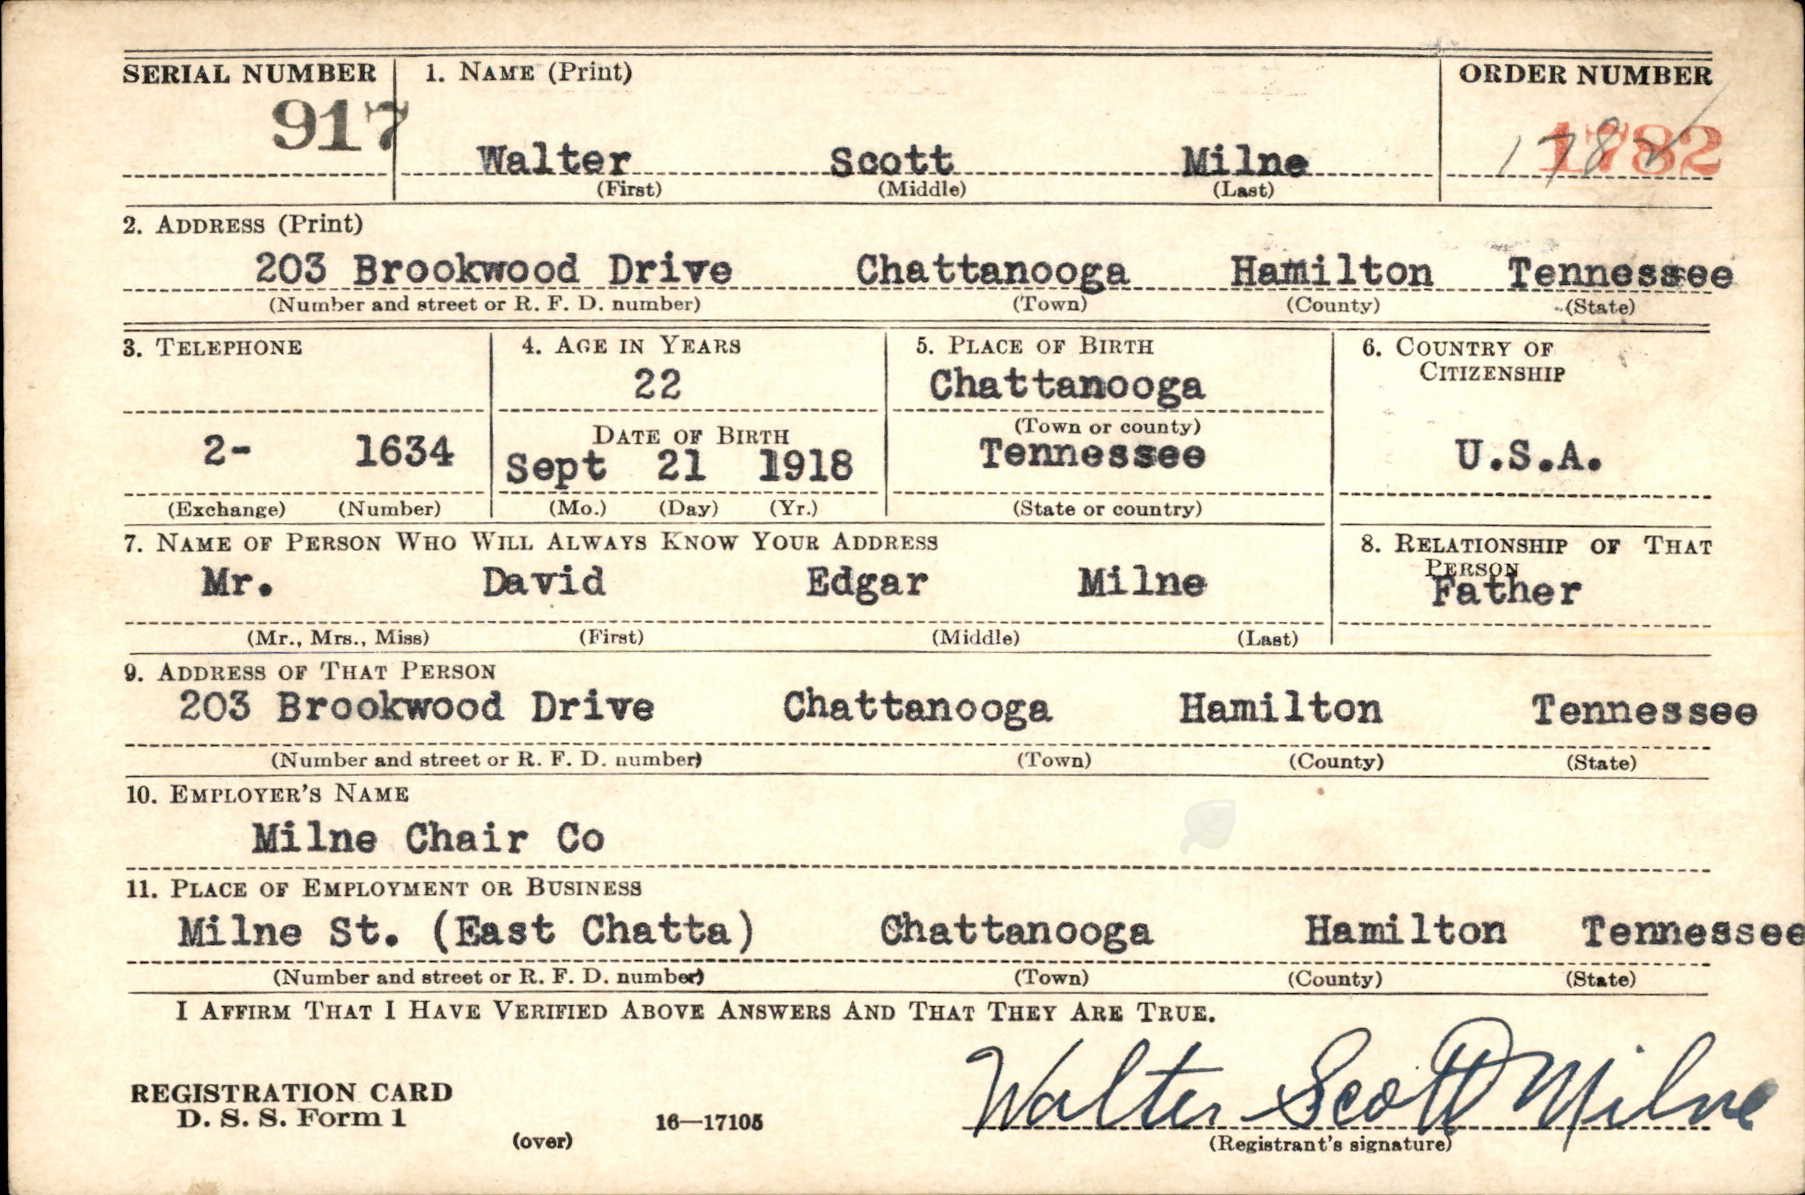 SERIAL NUMBER 1. NAME (Print) ORDER NUMBER
917 1782 1782
Walter Scott Milne
(First) (Middle) (Last)
2. ADDRESS (Print)
203 Brookwood Drive Chattanooga Hamilton Tennessee
(Number and street or R. F. D. number) (Town) (County) (State)
3. TELEPHONE 4. AGE IN YEARS 5. PLACE OF BIRTH 6. COUNTRY OF CITIZENSHIP
22 Chattanooga
DATE OF BIRTH (Town or county)
2- 1634 Sept 21 1918 Tennessee U.S.A.
(Exchange) (Number) (Mo.) (Day) (Yr.) (State or country)
7. NAME OF PERSON WHO WILL ALWAYS KNOW YOUR ADDRESS 8. RELATIONSHIP OF THAT PERSON
Mr. David Edgar Milne Father
(Mr., Mrs., Miss) (First) (Middle) (Last)
9. ADDRESS OF THAT PERSON
203 Brookwood Drive Chattanooga Hamilton Tennessee
(Number and street or R. F. D. number) (Town) (County) (State)
10. EMPLOYER'S NAME
Milne Chair Co
11. PLACE OF EMPLOYMENT OR BUSINESS
Milne St. (East Chatta) Chattanooga Hamilton Tennessee
(Number and street or R. F. D. number) (Town) (County) (State)
I AFFIRM THAT I HAVE VERIFIED ABOVE ANSWERS AND THAT THEY ARE TRUE.
Walter Scott Milne
REGISTRATION CARD
D. S. S. Form 1 16—17105
(over) (Registrant's signature)